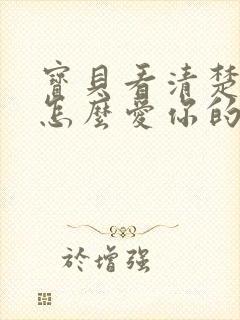 寶貝看清楚
怎麼愛你的
於增强